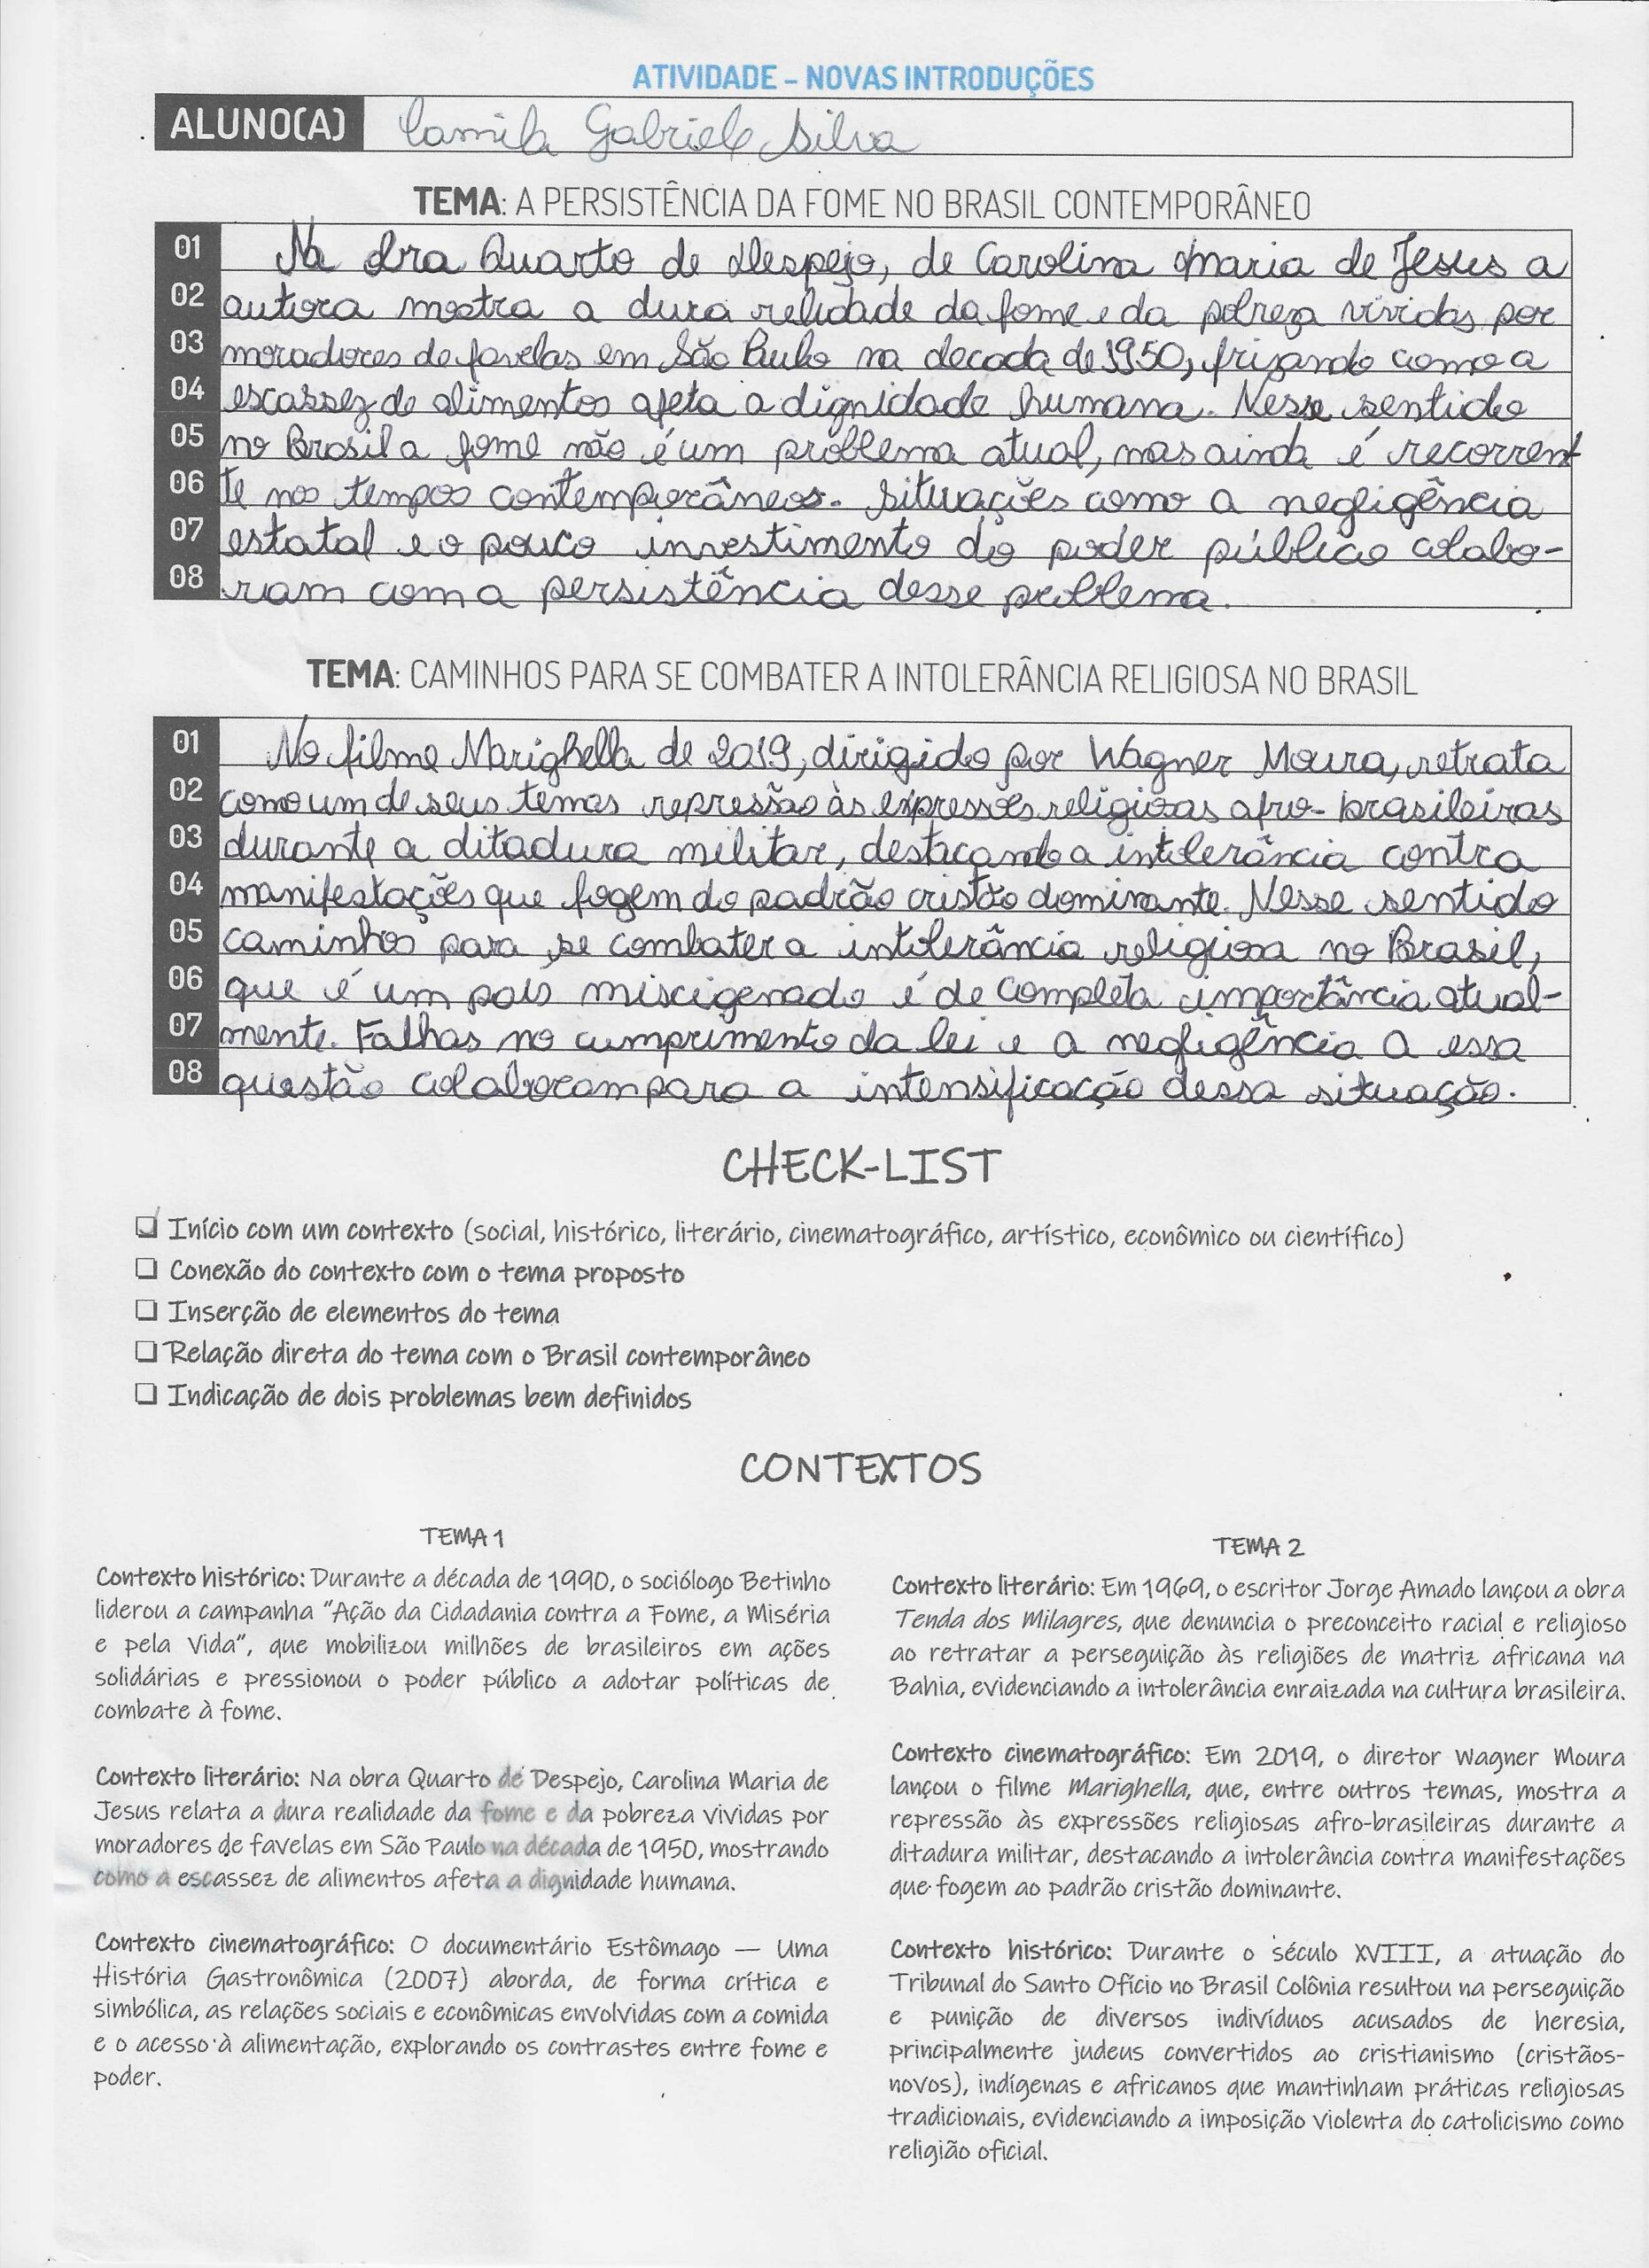 ATIVIDADE – NOVAS INTRODUÇÕES
ALUNO(A) Camila Gabriele Silva
TEMA: A PERSISTÊNCIA DA FOME NO BRASIL CONTEMPORÂNEO
01 Na obra Quarto de Despejo, de Carolina Maria de Jesus a
02 autora mostra a dura relidade da fome e da pobreza vividas por
03 moradores de favelas em São Paulo na decada de 1950, frizando como a
04 escassez de alimentos afeta a dignidade humana. Nesse sentido
05 no Brasil a fome não é um problema atual, mas ainda é recorrent
06 te nos tempos contemporâneos. Situações como a negligência
07 estatal e o pouco investimento do poder público colabo-
08 ram com a persistência desse problema.
TEMA: CAMINHOS PARA SE COMBATER A INTOLERÂNCIA RELIGIOSA NO BRASIL
01 No filme Marighella de 2019, dirigido por Wagner Moura, retrata
02 como um de seus temas repressão às expressões religiosas afro-brasileiras
03 durante a ditadura militar, destacando a intolerância contra
04 manifestações que fogem do padrão cristão dominante. Nesse sentido
05 caminhos para se combater a intolerância religiosa no Brasil,
06 que é um país miscigenado é de completa importância atual-
07 mente. Falhas no cumprimento da lei e a negligência a essa
08 questão colaboram para a intensificação dessa situação.
CHECK-LIST
❑ Início com um contexto (social, histórico, literário, cinematográfico, artístico, econômico ou científico)
❑ Conexão do contexto com o tema proposto
❑ Inserção de elementos do tema
❑ Relação direta do tema com o Brasil contemporâneo
❑ Indicação de dois problemas bem definidos
CONTEXTOS
TEMA 1
Contexto histórico: Durante a década de 1990, o sociólogo Betinho
liderou a campanha "Ação da Cidadania contra a Fome, a Miséria
e pela Vida", que mobilizou milhões de brasileiros em ações
solidárias e pressionou o poder público a adotar políticas de
combate à fome.
Contexto literário: Na obra Quarto de Despejo, Carolina Maria de
Jesus relata a dura realidade da fome e da pobreza vividas por
moradores de favelas em São Paulo na década de 1950, mostrando
como a escassez de alimentos afeta a dignidade humana.
Contexto cinematográfico: O documentário Estômago — Uma
História Gastronômica (2007) aborda, de forma crítica e
simbólica, as relações sociais e econômicas envolvidas com a comida
e o acesso à alimentação, explorando os contrastes entre fome e
poder.
TEMA 2
Contexto literário: Em 1969, o escritor Jorge Amado lançou a obra
Tenda dos Milagres, que denuncia o preconceito racial e religioso
ao retratar a perseguição às religiões de matriz africana na
Bahia, evidenciando a intolerância enraizada na cultura brasileira.
Contexto cinematográfico: Em 2019, o diretor Wagner Moura
lançou o filme Marighella, que, entre outros temas, mostra a
repressão às expressões religiosas afro-brasileiras durante a
ditadura militar, destacando a intolerância contra manifestações
que fogem ao padrão cristão dominante.
Contexto histórico: Durante o século XVIII, a atuação do
Tribunal do Santo Ofício no Brasil Colônia resultou na perseguição
e punição de diversos indivíduos acusados de heresia,
principalmente judeus convertidos ao cristianismo (cristãos-
novos), indígenas e africanos que mantinham práticas religiosas
tradicionais, evidenciando a imposição violenta do catolicismo como
religião oficial.